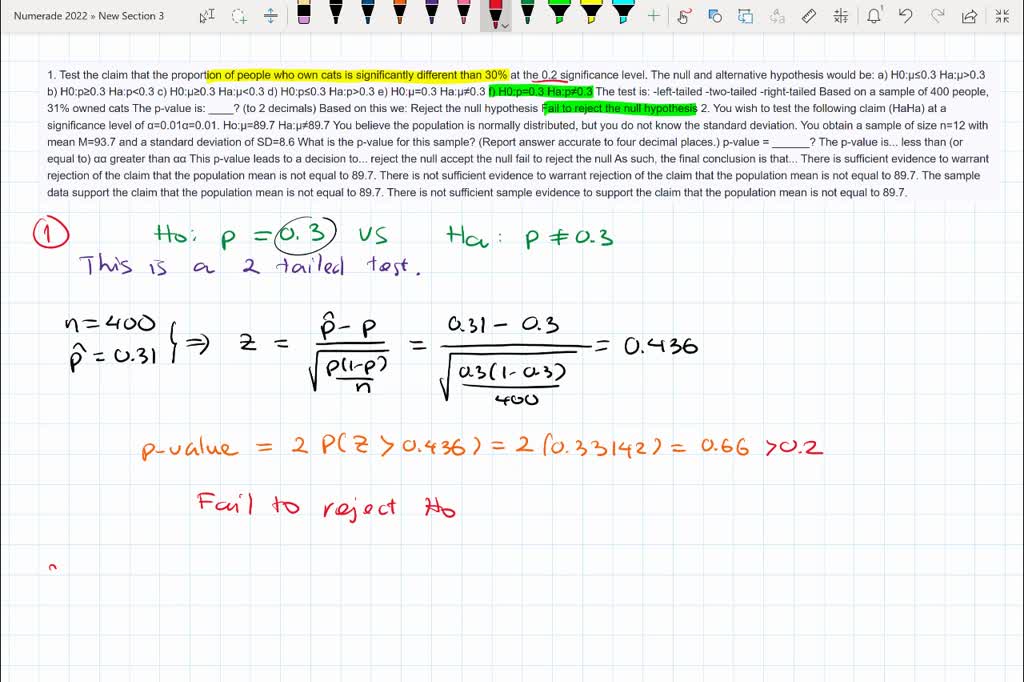 Numerade 2022 » New Section 3
1. Test the claim that the proportion of people who own cats is significantly different than 30% at the 0.2 significance level. The null and alternative hypothesis would be: a) H0:μ≤0.3 Ha:μ>0.3
b) H0:p≥0.3 Ha:p<0.3 c) H0:μ≥0.3 Ha:μ<0.3 d) H0:p≤0.3 Ha:p>0.3 e) H0:μ=0.3 Ha:μ≠0.3 f) H0:p=0.3 Ha:p≠0.3 The test is: -left-tailed -two-tailed -right-tailed Based on a sample of 400 people,
31% owned cats The p-value is: ____? (to 2 decimals) Based on this we: Reject the null hypothesis Fail to reject the null hypothesis 2. You wish to test the following claim (HaHa) at a
significance level of α=0.01α=0.01. Ho:μ=89.7 Ha:μ≠89.7 You believe the population is normally distributed, but you do not know the standard deviation. You obtain a sample of size n=12 with
mean M=93.7 and a standard deviation of SD=8.6 What is the p-value for this sample? (Report answer accurate to four decimal places.) p-value = ______? The p-value is... less than (or
equal to) αα greater than αα This p-value leads to a decision to... reject the null accept the null fail to reject the null As such, the final conclusion is that... There is sufficient evidence to warrant
rejection of the claim that the population mean is not equal to 89.7. There is not sufficient evidence to warrant rejection of the claim that the population mean is not equal to 89.7. The sample
data support the claim that the population mean is not equal to 89.7. There is not sufficient sample evidence to support the claim that the population mean is not equal to 89.7.
1 Ho: p = 0.3 vs Ha: p ≠ 0.3
This is a 2 tailed test.
n=400
p̂ = 0.31 } ⇒ z = (p̂ - p) / √(p(1-p)/n) = (0.31 - 0.3) / √(0.3(1-0.3)/400) = 0.436
p-value = 2 P(Z > 0.436) = 2 (0.33142) = 0.66 > 0.2
Fail to reject Ho